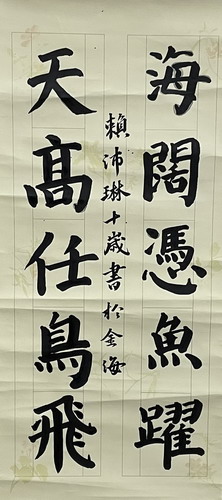 海闊憑魚躍
天高任鳥飛
賴沛琳十歲書於金海